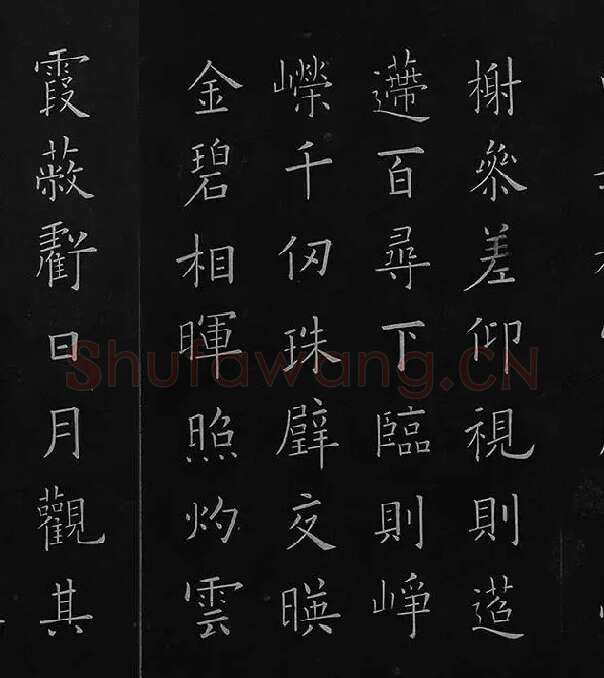 榭叅差仰視則迢
遰百尋下臨則崢
嶸千仞珠壁交暎
金碧相暉照灼雲
霞蔽虧日月觀其
Shufawang.CN